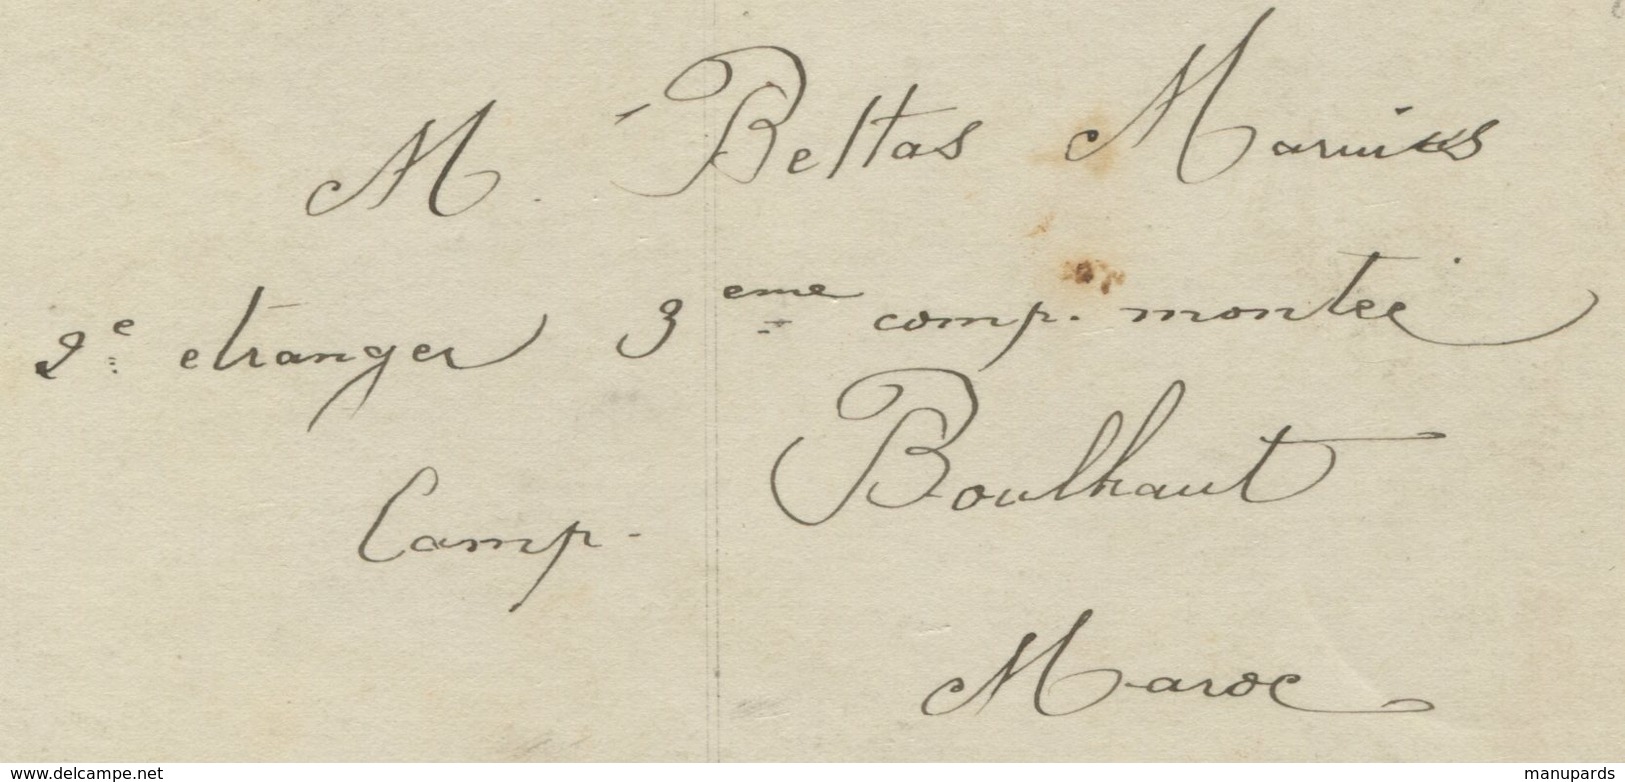 M. Beltas Marius
2e etranger 3eme comp. montée
Camp. Boulhaut
Maroc
www.delcampe.net
manupards